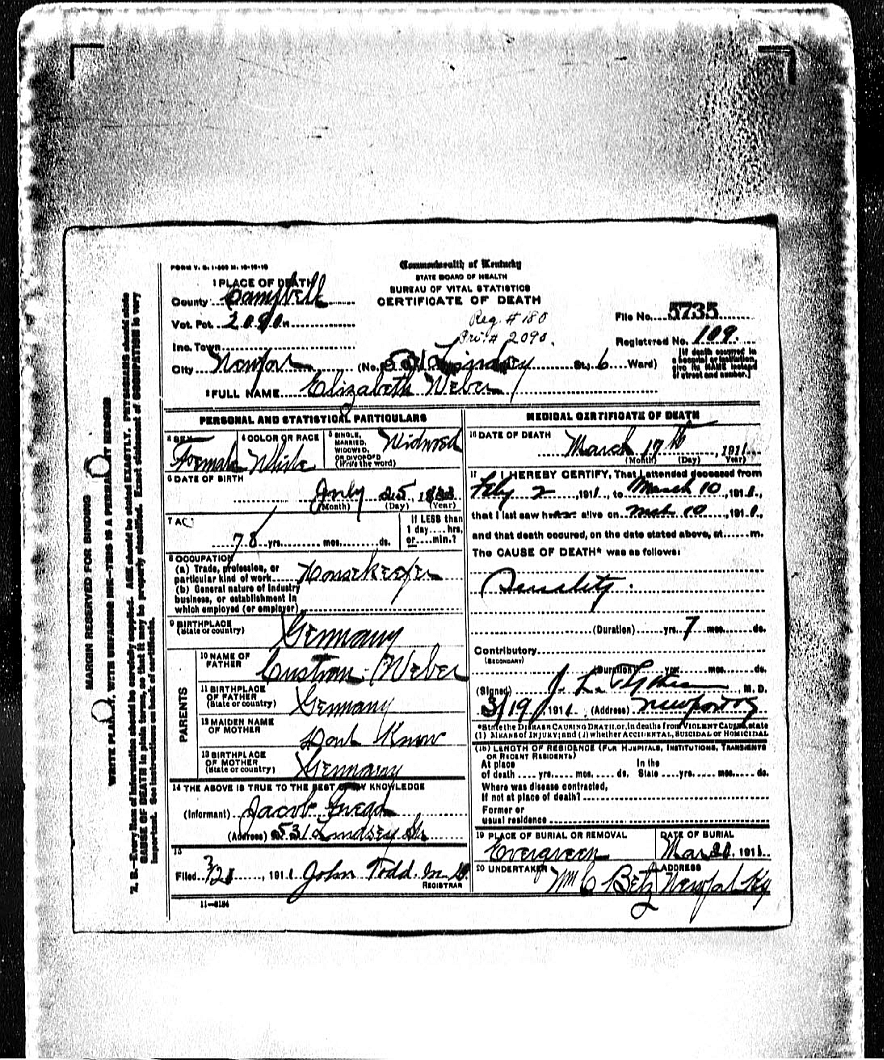 FORM V. S. 1-
Commonwealth of Kentucky
STATE BOARD OF HEALTH
BUREAU OF VITAL STATISTICS
CERTIFICATE OF DEATH
1 PLACE OF DEATH
County Campbell
Vot. Pct. 2090
Reg. # 180
2090.
File No. 5735
Registered No. 109.
Inc. Town
[If death occurred in a hospital or institution, give its NAME instead of street and number.]
City Newport (No. Lindsey St., 6 Ward)
2 FULL NAME Elizabeth Weber
PERSONAL AND STATISTICAL PARTICULARS
3 SEX Female
4 COLOR OR RACE White
5 SINGLE, MARRIED, WIDOWED, OR DIVORCED (Write the word) Widowed
6 DATE OF BIRTH
July 25, (Month) (Day) (Year)
7 AGE
78 yrs. mos. ds.
If LESS than 1 day, hrs. or min.?
8 OCCUPATION
(a) Trade, profession, or particular kind of work Housekeeper
(b) General nature of industry business, or establishment in which employed (or employer)
9 BIRTHPLACE (State or country) Germany
PARENTS
10 NAME OF FATHER Weber
11 BIRTHPLACE OF FATHER (State or country) Germany
12 MAIDEN NAME OF MOTHER Dont Know
13 BIRTHPLACE OF MOTHER (State or country) Germany
14 THE ABOVE IS TRUE TO THE BEST OF MY KNOWLEDGE
(Informant) Jacob
(Address) 531 Lindsey St
15
Filed 3/21, 1911 John Todd M.D.
REGISTRAR
11-5184
MEDICAL CERTIFICATE OF DEATH
16 DATE OF DEATH
March 17th, 1911
(Month) (Day) (Year)
17 I HEREBY CERTIFY, That I attended deceased from
Feby 2, 1911, to March 10, 1911,
that I last saw her alive on Mch 10, 1911,
and that death occurred, on the date stated above, at m.
The CAUSE OF DEATH* was as follows:
Senility.
(Duration) yrs. 7 mos. ds.
Contributory (SECONDARY)
(Duration) yrs. mos. ds.
(Signed) J. L. M. D.
3/19, 1911 (Address) Newport Ky
*State the DISEASE CAUSING DEATH, or, in deaths from VIOLENT CAUSES, state (1) MEANS OF INJURY; and (2) whether ACCIDENTAL, SUICIDAL or HOMICIDAL
(18) LENGTH OF RESIDENCE (FOR HOSPITALS, INSTITUTIONS, TRANSIENTS OR RECENT RESIDENTS)
At place of death yrs. mos. ds. In the State yrs. mos. ds.
Where was disease contracted, if not at place of death?
Former or usual residence
19 PLACE OF BURIAL OR REMOVAL Evergreen
DATE OF BURIAL Mar 20, 1911.
20 UNDERTAKER Wm C Betz
ADDRESS Newport Ky
MARGIN RESERVED FOR BINDING
WRITE PLAINLY, WITH UNFADING INK—THIS IS A PERMANENT RECORD
N. B.—Every item of information should be carefully supplied. AGE should be stated EXACTLY. PHYSICIANS should state
CAUSE OF DEATH in plain terms, so that it may be properly classified. Exact statement of OCCUPATION is very
important. See instructions on back of certificate.